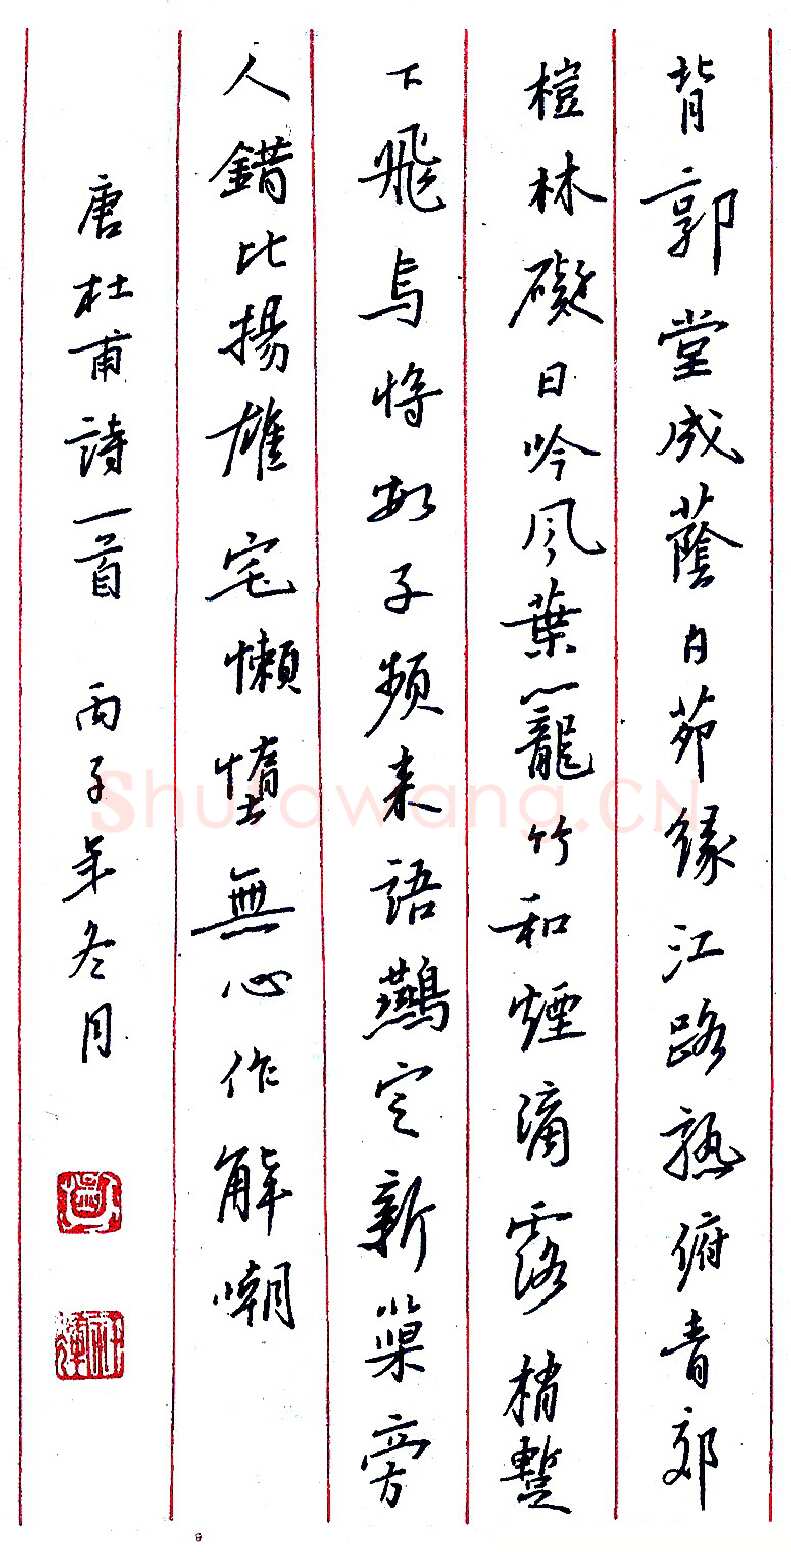 背郭堂成蔭白茆緣江路熟俯青郊
榿林礙日吟風葉籠竹和煙滴露梢蹔
下飛烏將數子頻来語鷰定新巢旁
人錯比揚雄宅懶惰無心作解嘲
唐杜甫詩一首 丙子年冬月
Shufawang.CN